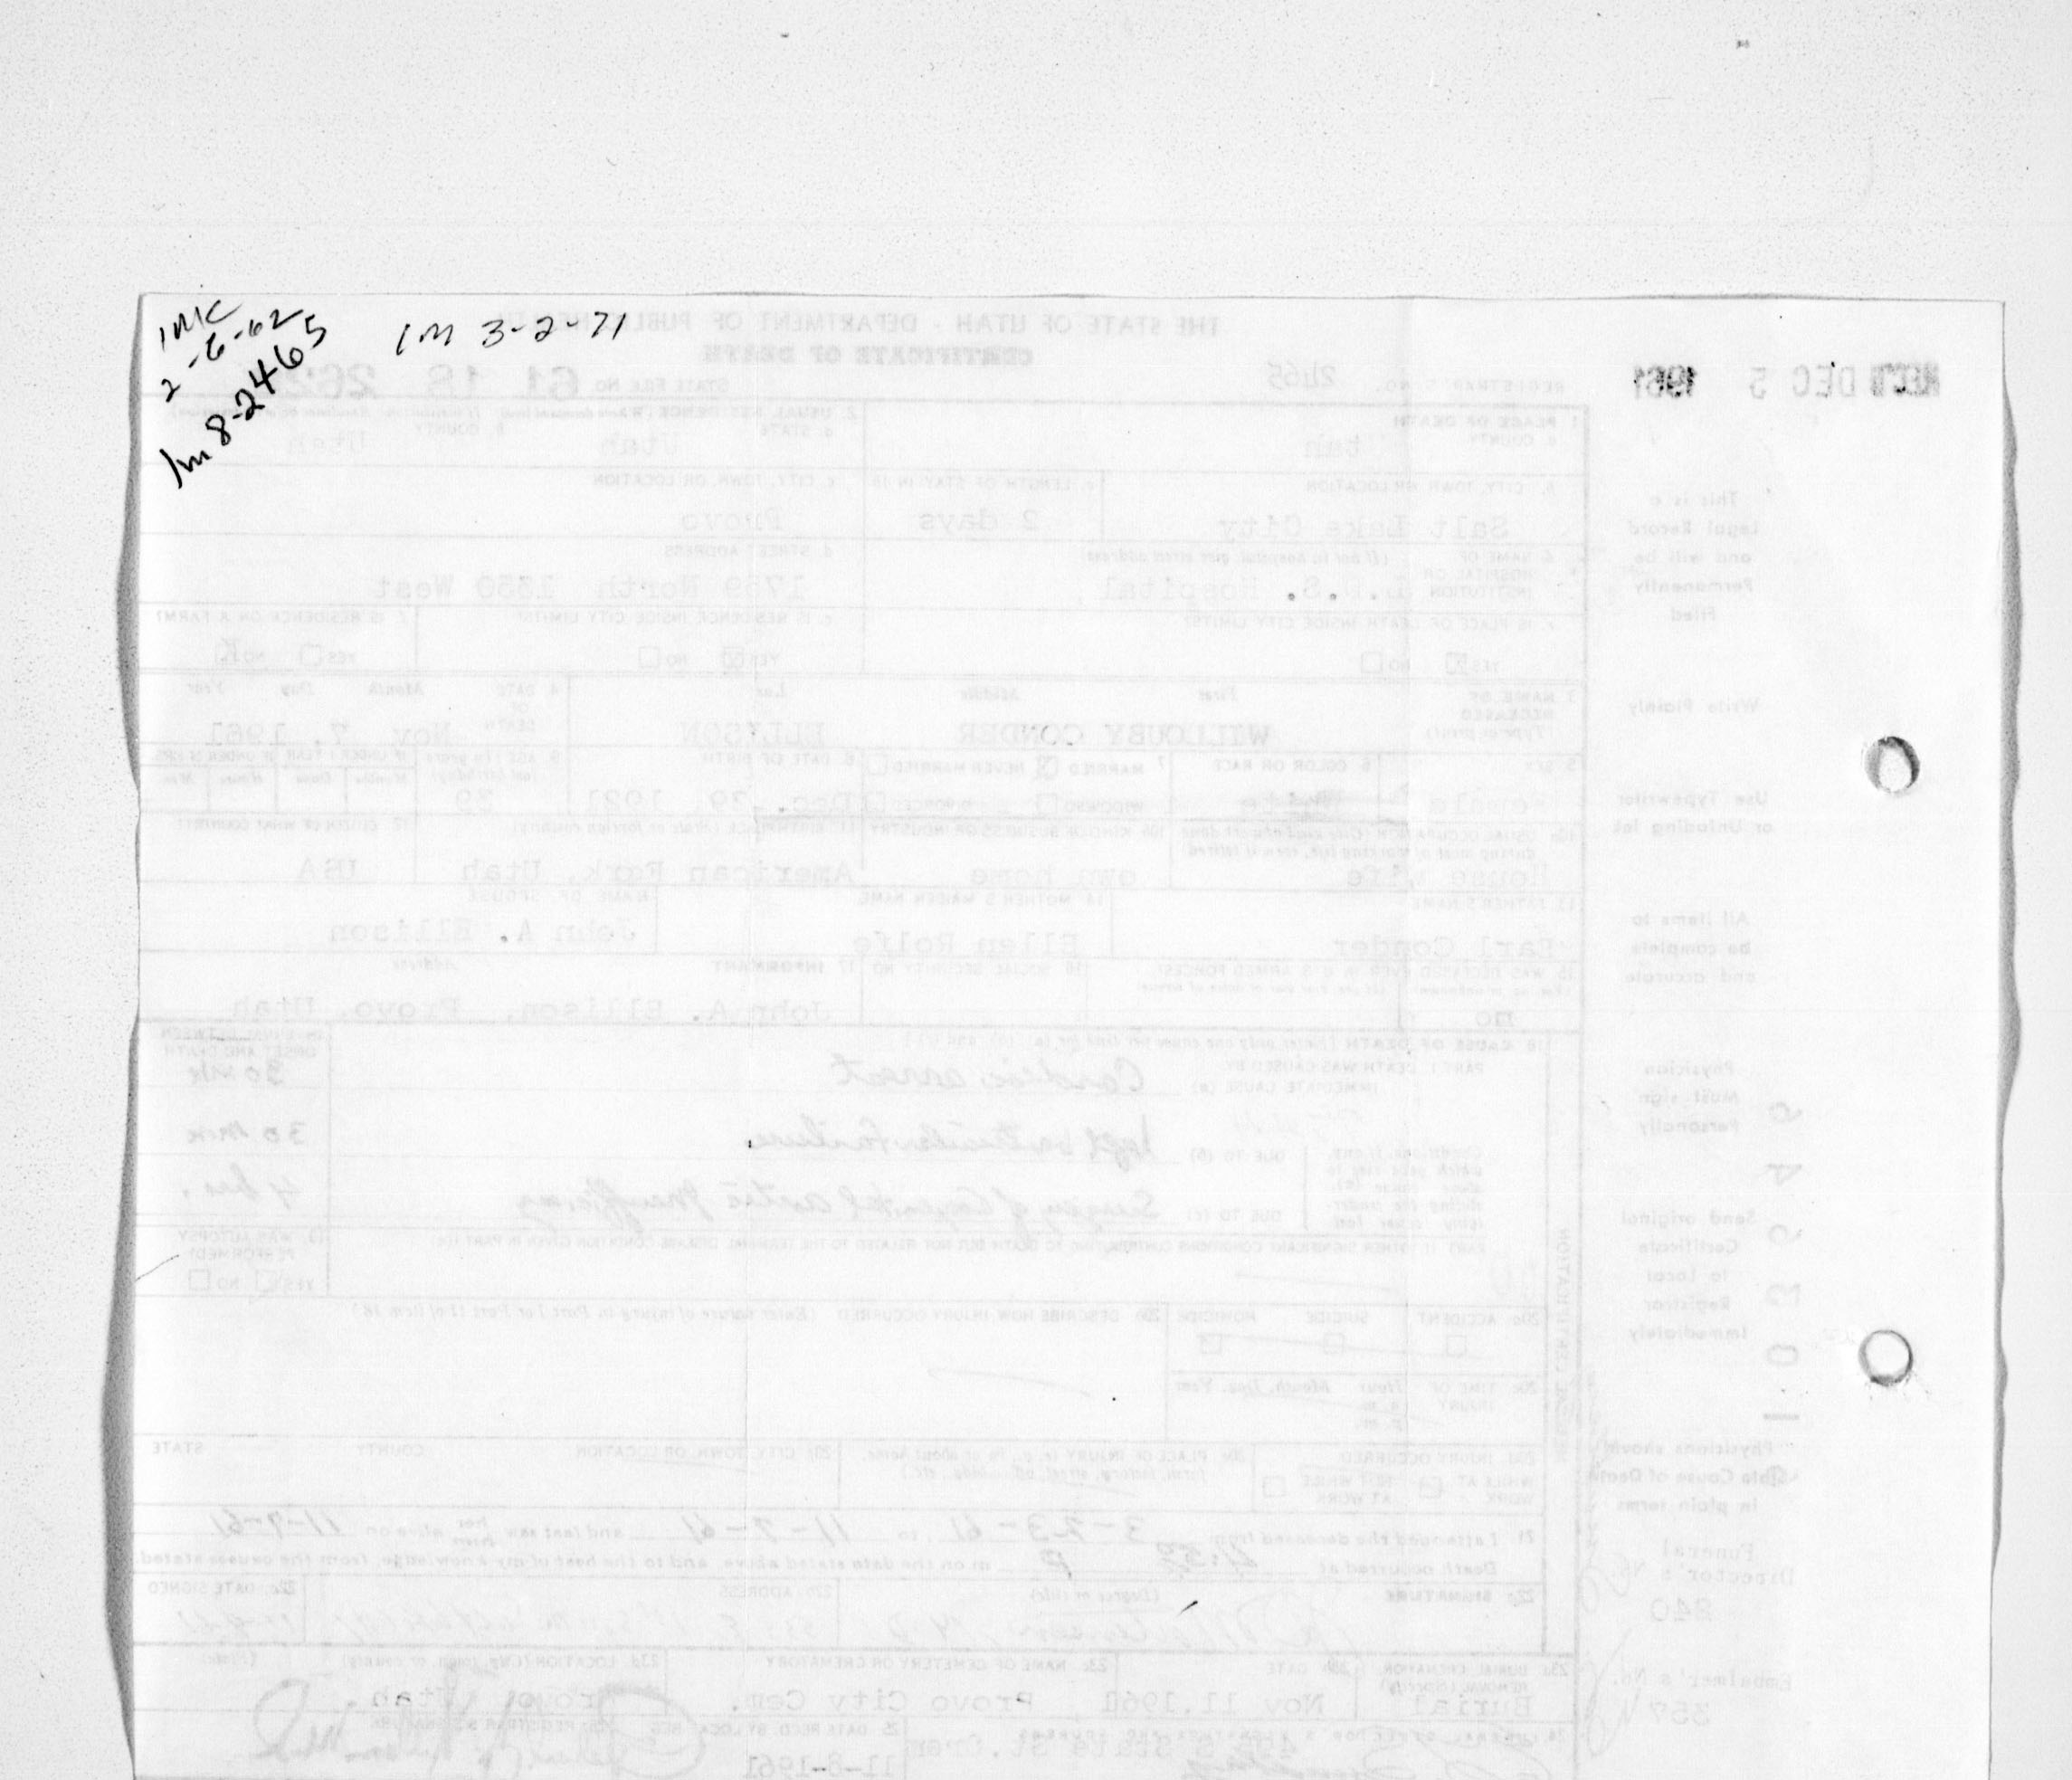 1MC
2-6-62
1m 8-2465
1m 3-2-71
THE STATE OF UTAH - DEPARTMENT OF PUBLIC HEALTH
CERTIFICATE OF DEATH
REC'D DEC 5 1961
REGISTRAR'S NO. 2465
STATE FILE NO. 61 18
1 PLACE OF DEATH
a. COUNTY
2. USUAL RESIDENCE
a. STATE Utah
b. COUNTY Utah
b. CITY, TOWN OR LOCATION Salt Lake City
c. LENGTH OF STAY IN 1b 2 days
c. CITY, TOWN, OR LOCATION Provo
d. NAME OF HOSPITAL OR INSTITUTION (If not in hospital, give street address)
L.D.S. Hospital
d. STREET ADDRESS
1759 North 1350 West
e. IS PLACE OF DEATH INSIDE CITY LIMITS? YES NO
e. IS RESIDENCE INSIDE CITY LIMITS? YES NO
f. IS RESIDENCE ON A FARM? YES NO
3 NAME OF DECEASED (Type or print) First Middle Last
WILLOUBY CONDER ELLISON
4 DATE OF DEATH Month Day Year
Nov 7, 1961
5 SEX Female
6 COLOR OR RACE
7 MARRIED NEVER MARRIED WIDOWED DIVORCED
8 DATE OF BIRTH
9 AGE (In years last birthday) 39
10a USUAL OCCUPATION House wife
10b KIND OF BUSINESS OR INDUSTRY own home
11 BIRTHPLACE (State or foreign country) American Fork, Utah
12 CITIZEN OF WHAT COUNTRY? USA
13 FATHER'S NAME Earl Conder
14 MOTHER'S MAIDEN NAME Ellen Rolfe
NAME OF SPOUSE John A. Ellison
15 WAS DECEASED EVER IN U S ARMED FORCES? no
16 SOCIAL SECURITY NO
17 INFORMANT Address
John A. Ellison, Provo, Utah
18 CAUSE OF DEATH
PART I. DEATH WAS CAUSED BY
IMMEDIATE CAUSE (a) Cardiac arrest
INTERVAL BETWEEN ONSET AND DEATH
30 min
DUE TO (b) left ventricular failure
30 min
DUE TO (c) Surgery of Congenital aortic insufficiency
4 hrs.
PART II OTHER SIGNIFICANT CONDITIONS CONTRIBUTING TO DEATH BUT NOT RELATED TO THE TERMINAL DISEASE CONDITION GIVEN IN PART I(a)
19. WAS AUTOPSY PERFORMED? YES NO
20a ACCIDENT SUICIDE HOMICIDE
20b DESCRIBE HOW INJURY OCCURRED (Enter nature of injury in Part I or Part II of item 18)
20c TIME OF INJURY Hour Month, Day, Year
a. m.
p. m.
20d INJURY OCCURRED
WHILE AT WORK NOT WHILE AT WORK
20e PLACE OF INJURY (e.g., in or about home, farm, factory, street, office bldg., etc.)
20f CITY, TOWN, OR LOCATION COUNTY STATE
21 I attended the deceased from 3-23-61 to 11-7-61 and last saw her alive on 11-7-61
Death occurred at P m on the date stated above, and to the best of my knowledge, from the causes stated
22a SIGNATURE (Degree or title)
22b ADDRESS
22c DATE SIGNED
23a BURIAL, CREMATION, REMOVAL (Specify) Burial
23b DATE Nov 11, 1961
23c NAME OF CEMETERY OR CREMATORY Provo City Cem.
23d LOCATION (City, town, or county) (State)
Provo Utah.
25 DATE REC'D. BY LOCAL REG.
11-8-1961
This is a
Legal Record
and will be
Permanently
Filed
Write Plainly
Use Typewriter
or Unfading Ink
All items to
be complete
and accurate
Physician
Must sign
Personally
Send original
Certificate
to Local
Registrar
Immediately
Physicians should
state Cause of Death
in plain terms
Funeral
Director's No.
840
Embalmer's No.
357